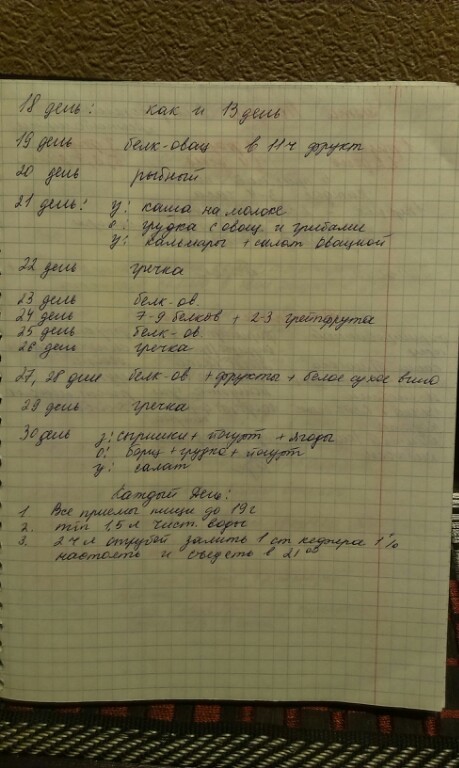 18 день: как и 13 день
19 день белк-овощ в 11ч фрукт
20 день рыбный
21 день: у: каша на молоке
о: грудка с овощ. и грибами
у: кальмары + салат овощной
22 день гречка
23 день белк-ов.
24 день 7-9 белков + 2-3 грейпфрута
25 день белк-ов.
26 день гречка
27, 28 дни белк-ов + фрукты + белое сухое вино
29 день гречка
30 день з: сырники + йогурт + ягоды
о: борщ + грудка + йогурт
у: салат
Каждый день:
1. Все приемы пищи до 19ч
2. min 1,5 л чист. воды
3. 2 ч л отрубей залить 1 ст кефира 1%
настоять и съесть в 21 00